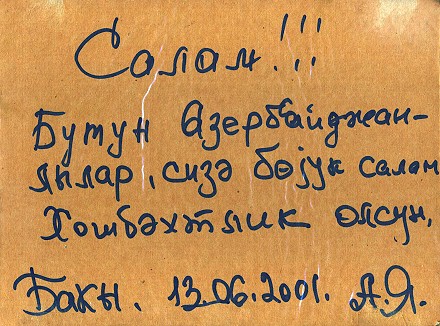 Салам!!!
Бутун Азербайджан-
лылар, сизә бөјук салам
Хошбәхтлик олсун,
Бакы. 13.06.2001. А.Я.